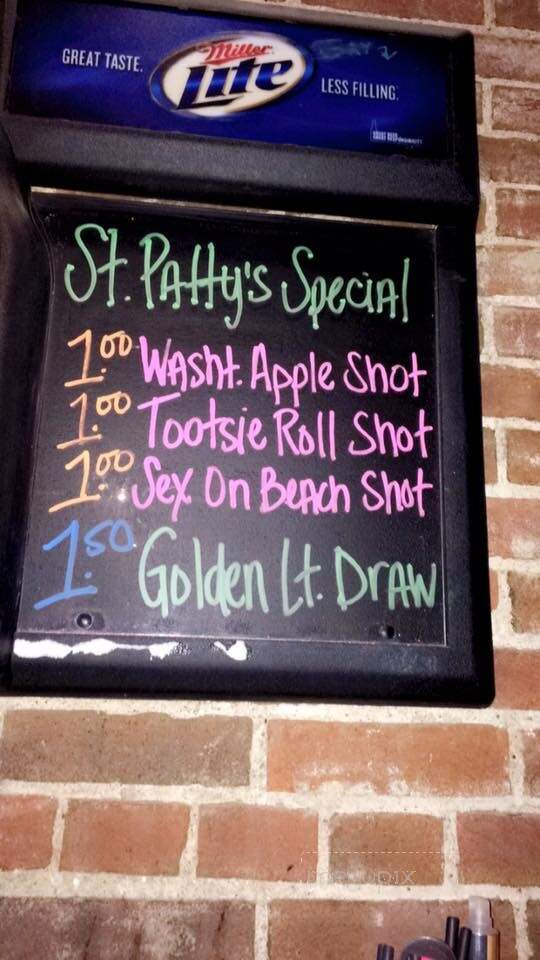 GREAT TASTE.
Miller
Lite
LESS FILLING.
St. Patty's Special
1.00 Washt. Apple Shot
1.00 Tootsie Roll Shot
1.00 Sex On Beach Shot
1.50 Golden Lt. Draw